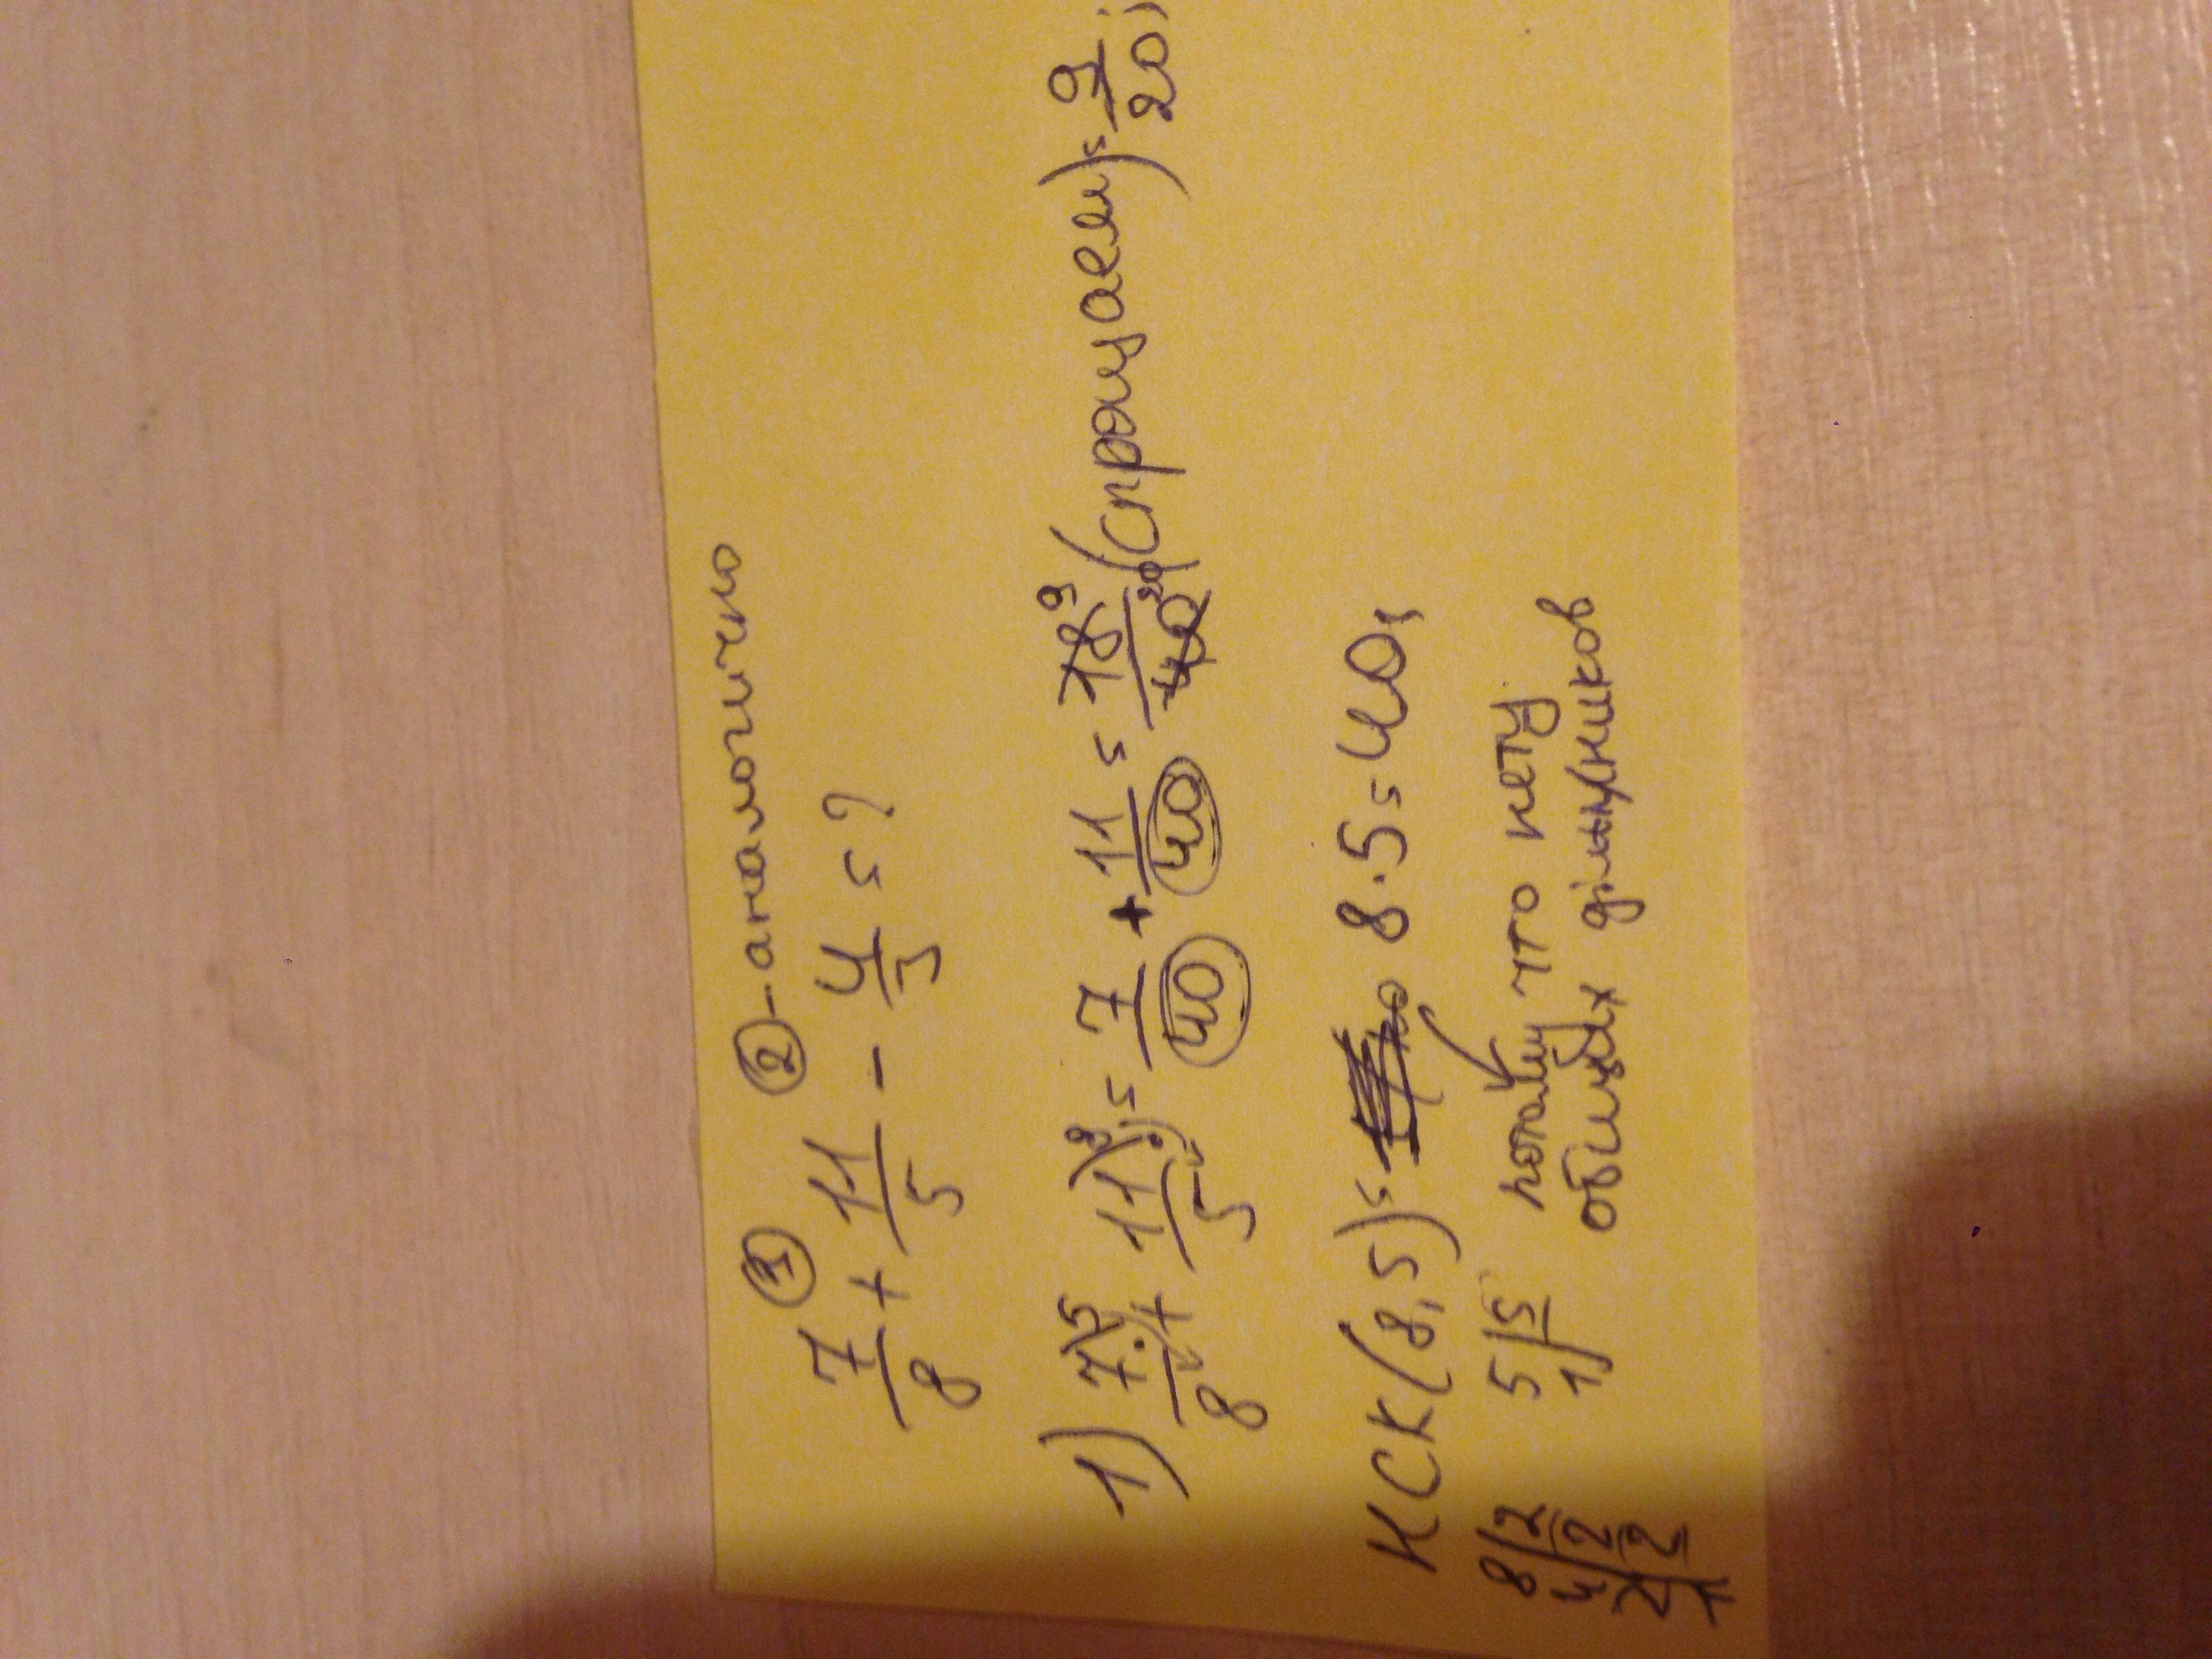 ① ② - аналогично
7/8 + 11/5 - 4/3 = ?
1) 7\5/8 + 11\8/5 = 7/40 + 11/40 = 18 9/40 20 (спрощаем) = 9/20;
НСК(8,5) = 8·5 = 40,
8|2 5|5 потому что нету
4|2 1| общих дільників
2|2
1